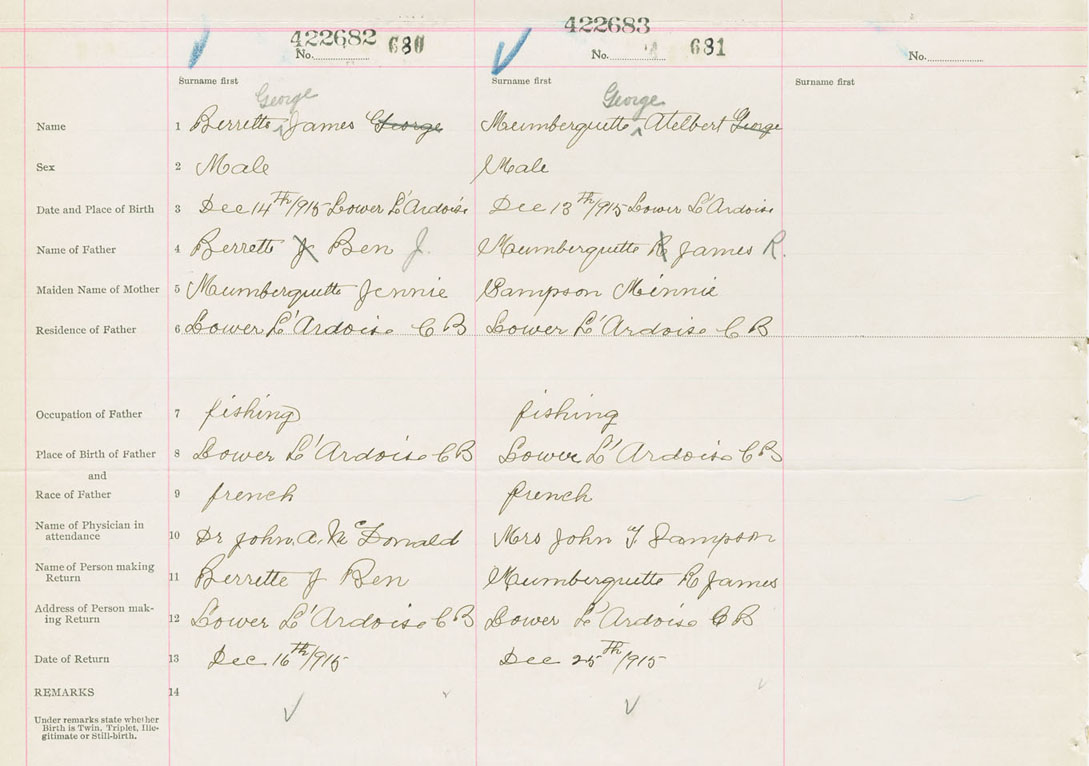 422682 680 422683 681
No. No. No.
Surname first Surname first Surname first
George George
Name 1 Berrette James George Mumberquette Atelbert George
Sex 2 Male Male
Date and Place of Birth 3 Dec 14th/915 Lower L'Ardoise Dec 13th/915 Lower L'Ardoise
Name of Father 4 Berrette J Ben J. Mumberquette R James R.
Maiden Name of Mother 5 Mumberquette Jennie Sampson Minnie
Residence of Father 6 Lower L'Ardoise C B Lower L'Ardoise C B
Occupation of Father 7 fishing fishing
Place of Birth of Father 8 Lower L'Ardoise C B Lower L'Ardoise C B
and
Race of Father 9 french french
Name of Physician in
attendance 10 Dr John A. McDonald Mrs John T Sampson
Name of Person making
Return 11 Berrette J Ben Mumberquette R James
Address of Person mak-
ing Return 12 Lower L'Ardoise C B Lower L'Ardoise C B
Date of Return 13 Dec 16th/915 Dec 25th/915
REMARKS 14
Under remarks state whether
Birth is Twin, Triplet, Ille-
gitimate or Still-birth.